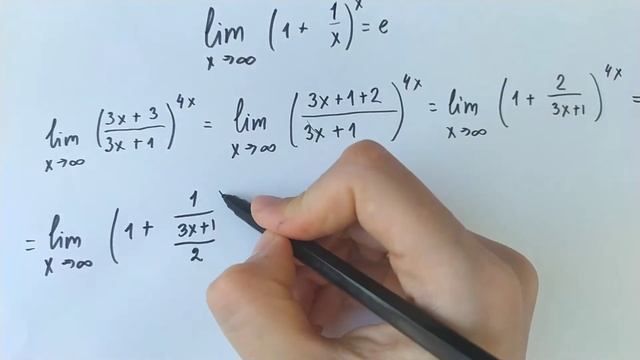 lim x→∞ (1 + 1/x)^x = e
lim x→∞ ((3x + 3)/(3x + 1))^4x = lim x→∞ ((3x + 1 + 2)/(3x + 1))^4x = lim x→∞ (1 + 2/(3x+1))^4x =
= lim x→∞ (1 + 1/((3x+1)/2)